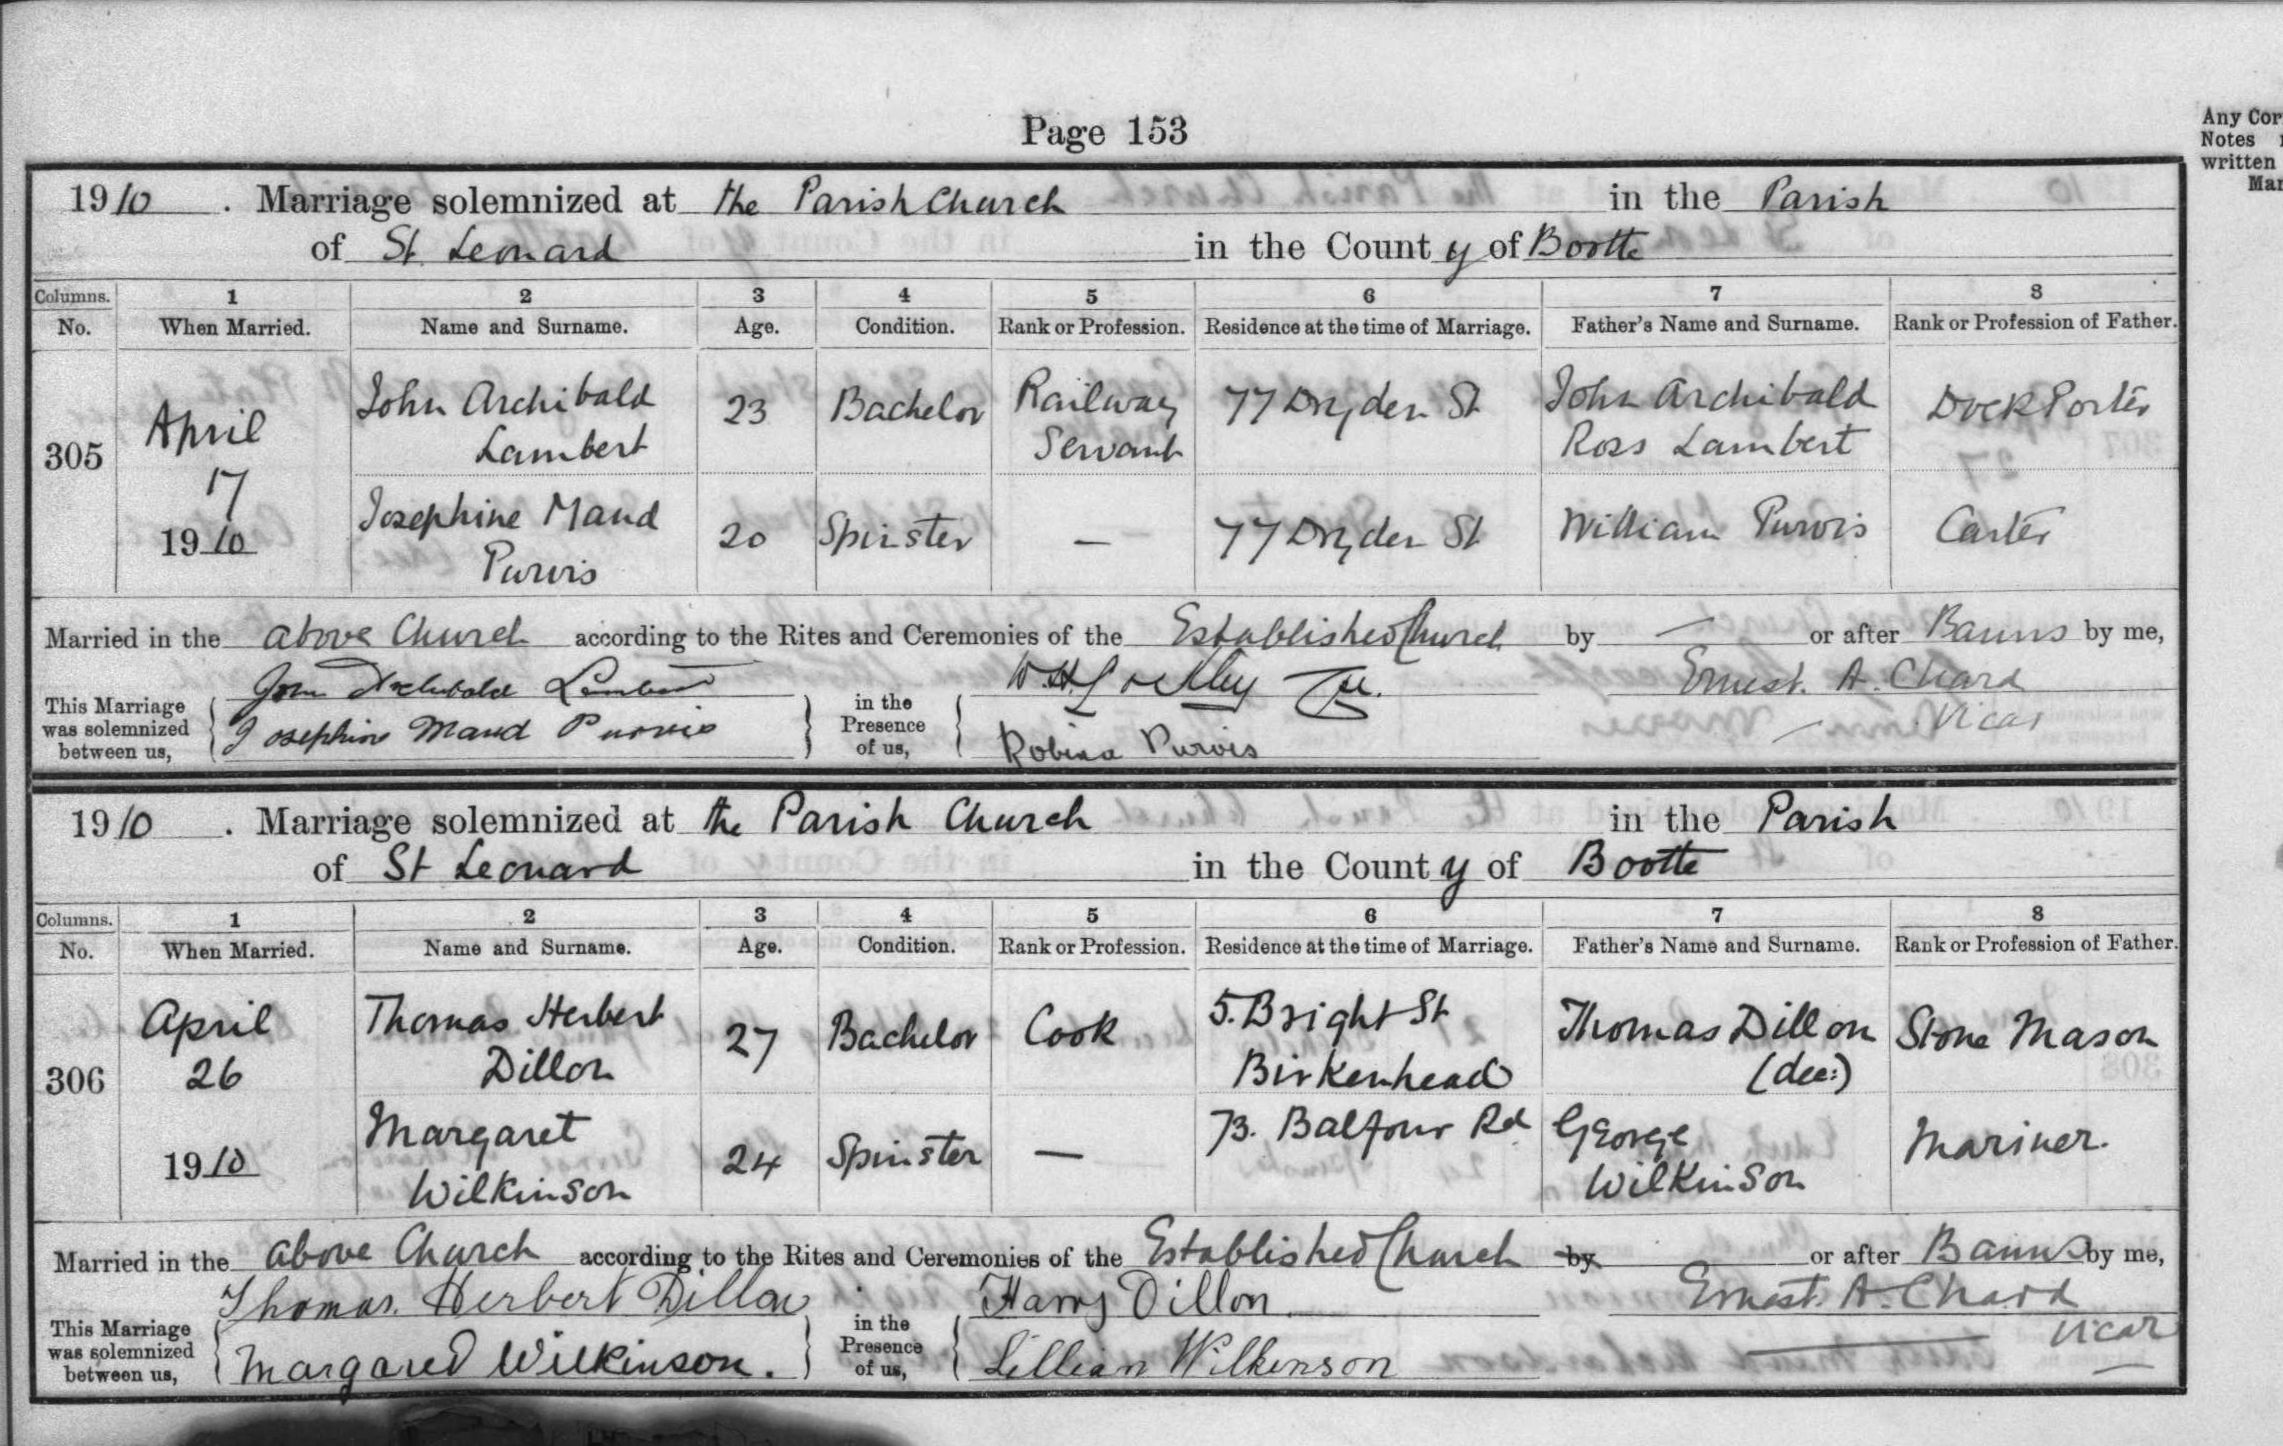 Page 153
Any Cor
Notes
written
Mar
1910 . Marriage solemnized at the Parish Church in the Parish
of St. Leonard in the County of Bootle
Columns. 1 2 3 4 5 6 7 8
No. When Married. Name and Surname. Age. Condition. Rank or Profession. Residence at the time of Marriage. Father's Name and Surname. Rank or Profession of Father.
John Archibald 23 Bachelor Railway 77 Dryden St John Archibald Dock Porter
April
Lambert Servant Ross Lambert
305
17
Josephine Maud 20 Spinster — 77 Dryden St William Purvis Carter
1910
Purvis
Married in the above Church according to the Rites and Ceremonies of the Established Church by — or after Banns by me,
John Archibald Lambert W. H. Ernest. A. Chard
This Marriage was solemnized between us, in the Presence of us, Vicar
Josephine Maud Purvis Robina Purvis
1910 . Marriage solemnized at the Parish Church in the Parish
of St Leonard in the County of Bootle
Columns. 1 2 3 4 5 6 7 8
No. When Married. Name and Surname. Age. Condition. Rank or Profession. Residence at the time of Marriage. Father's Name and Surname. Rank or Profession of Father.
April Thomas Herbert 27 Bachelor Cook 5. Bright St Thomas Dillon Stone Mason
306 26 Dillon Birkenhead (dec:)
Margaret 24 Spinster — 73. Balfour Rd George Mariner.
1910 Wilkinson Wilkinson
Married in the above Church according to the Rites and Ceremonies of the Established Church by or after Banns by me,
Thomas. Herbert Dillon Harry Dillon. Ernest. A. Chard
This Marriage was solemnized between us, in the Presence of us, Vicar
Margaret Wilkinson. Lillian Wilkinson